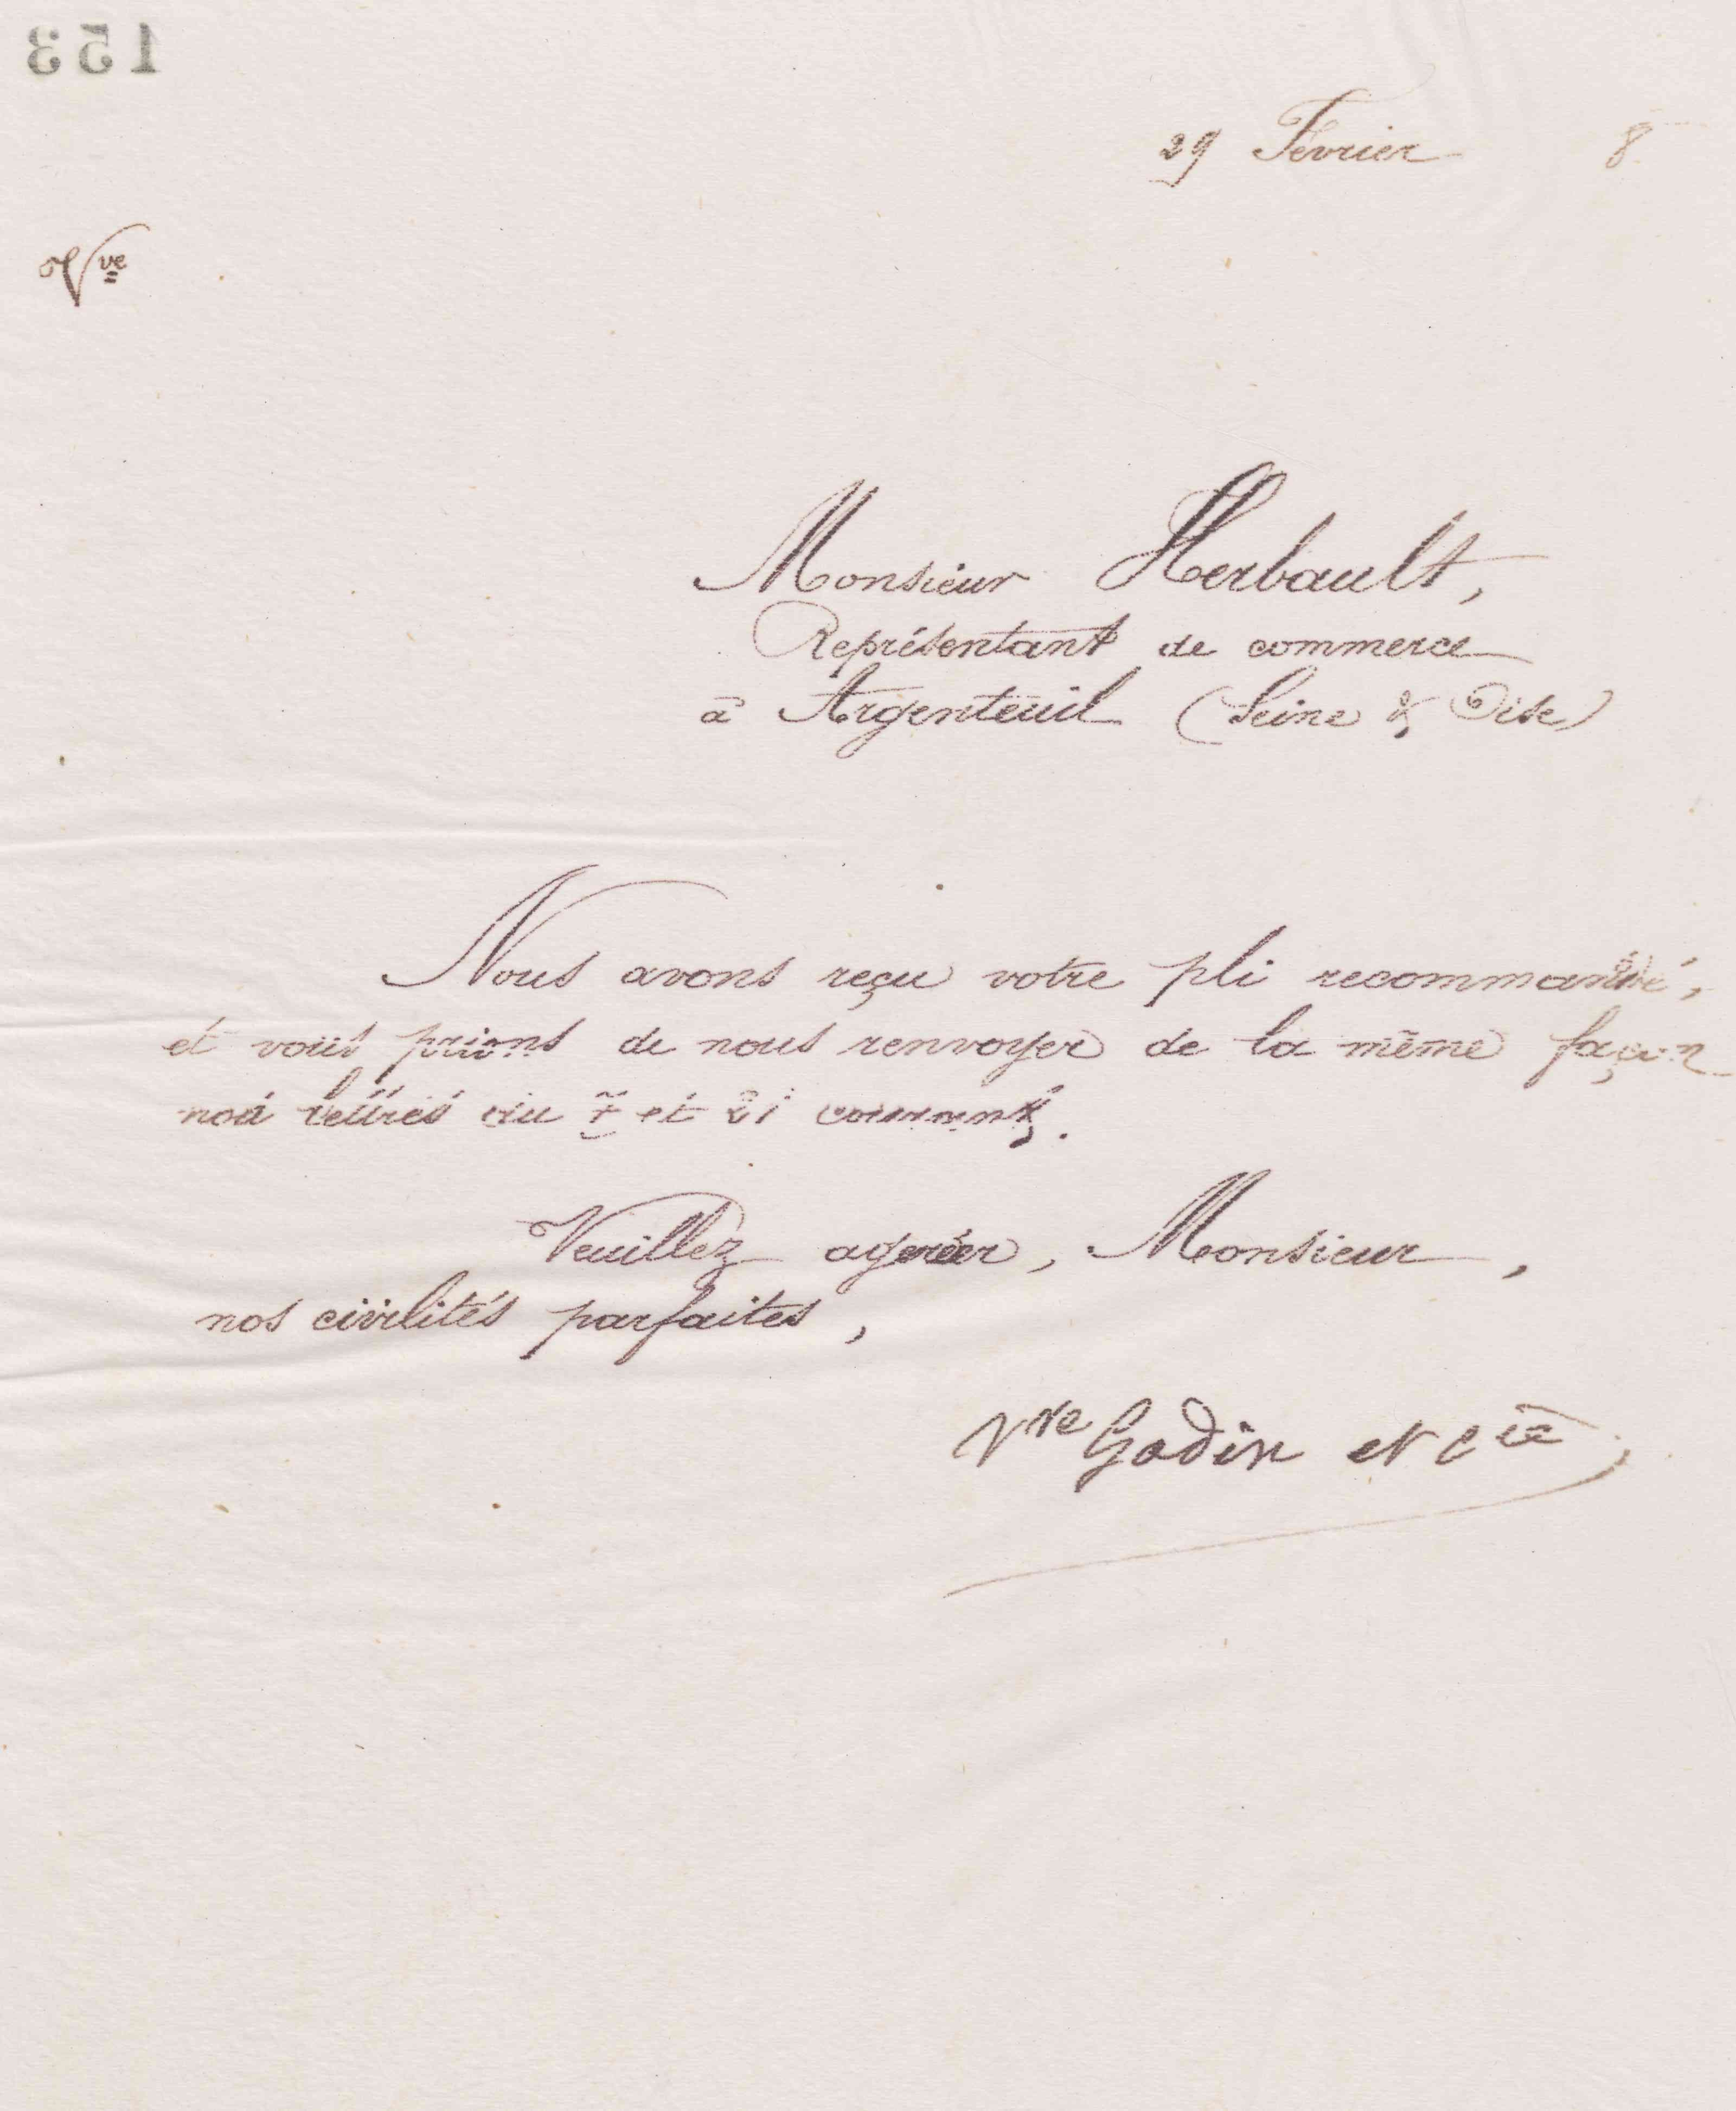 153
29 Février 8
Vve
Monsieur Herbault,
Représentant de commerce
à Argenteuil (Seine & Oise)
Nous avons reçu votre pli recommandé,
et vous prions de nous renvoyer de la même façon
nos lettres du et 21 courant.
Veuillez agréer, Monsieur,
nos civilités parfaites,
Vve Godin et Cie